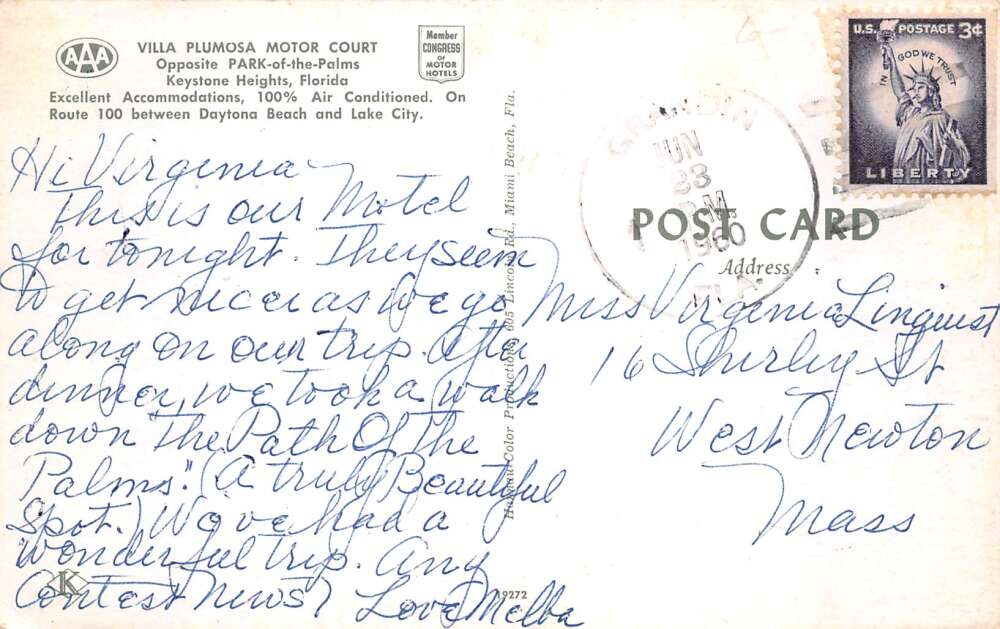 AAA
VILLA PLUMOSA MOTOR COURT
Opposite PARK-of-the-Palms
Keystone Heights, Florida
Excellent Accommodations, 100% Air Conditioned. On
Route 100 between Daytona Beach and Lake City.
Member
CONGRESS
OF
MOTOR
HOTELS
Hi Virginia
This is our Motel
for tonight. They seem
to get nicer as we go
along on our trip. After
dinner, we took a walk
down "The Path Of The
Palms". (A truly Beautiful
Spot.) We've had a
wonderful trip. Any
Contest News? Love Melba
K
19272
Color Productions, 605 Lincoln Rd., Miami Beach, Fla.
GRANDIN
JUN
23
P.M.
1960
FLA.
U.S. POSTAGE 3¢
IN GOD WE TRUST
LIBERTY
POST CARD
Address
Miss Virginia Linquist
16 Shirley St
West Newton
Mass